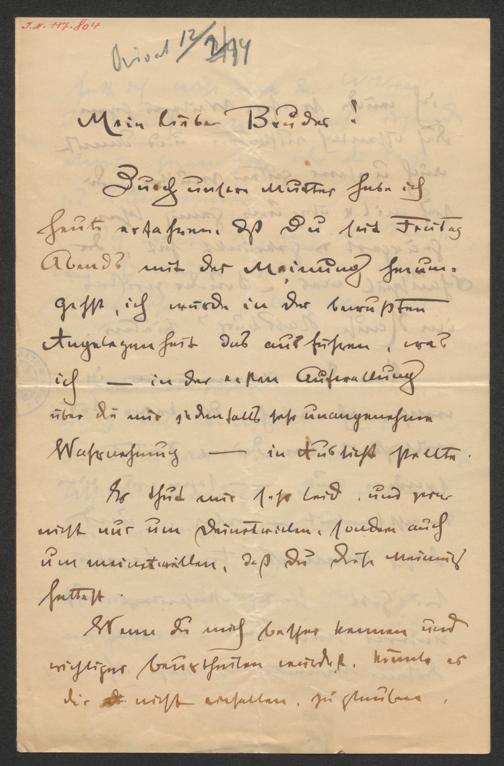 J.N. 117.804
12/2/94
Mein lieber Bruder!
Durch unsere Mutter habe ich
heute erfahren, dß Du seit Freitag
Abends mit der Meinung herum-
gehst, ich würde in der bewußten
Angelegenheit das ausführen, was
ich — in der ersten Aufwallung
über die mir jedenfalls sehr unangenehme
Wahrnehmung — in Aussicht stellte.
Es thut mir sehr leid, und zwar
nicht nur um Deinetwillen, sondern auch
um meinetwillen, daß Du diese Meinung
hattest.
Wenn Du mich besser kennen und
richtiger beurtheilen würdest, könnte es
dir nicht einfallen, zu glauben,